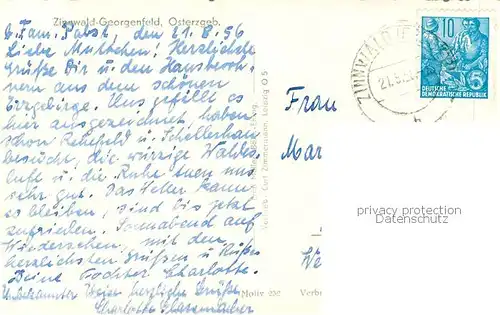 Zinnwald-Georgenfeld, Osterzgeb.
b. Fam. Pabst, den 21.8.56
Liebe Muttchen! Herzlichste
Grüße Dir u. den Hausbewoh-
nern aus dem schönen
Erzgebirge. Uns gefällt es
hier ausgezeichnet, haben
schon Rehefeld u. Schellerhau
besucht, die würzige Waldes-
luft u. die Ruhe tuen uns
sehr gut. Das kann
so bleiben, sind bis jetzt
zufrieden. Sonnabend auf
Wiedersehen, mit den
herzlichsten Grüßen u. Küßen
Deine Tochter Charlotte.
Unbekannter Weise herzliche Grüße
Charlotte
Motiv 232
Verlag: Curt Zimmermann, Leipzig O 5
Frau
Mar
We
Verbr
ZINNWALD
10
5
DEUTSCHE
DEMOKRATISCHE REPUBLIK
b
privacy protection
Datenschutz